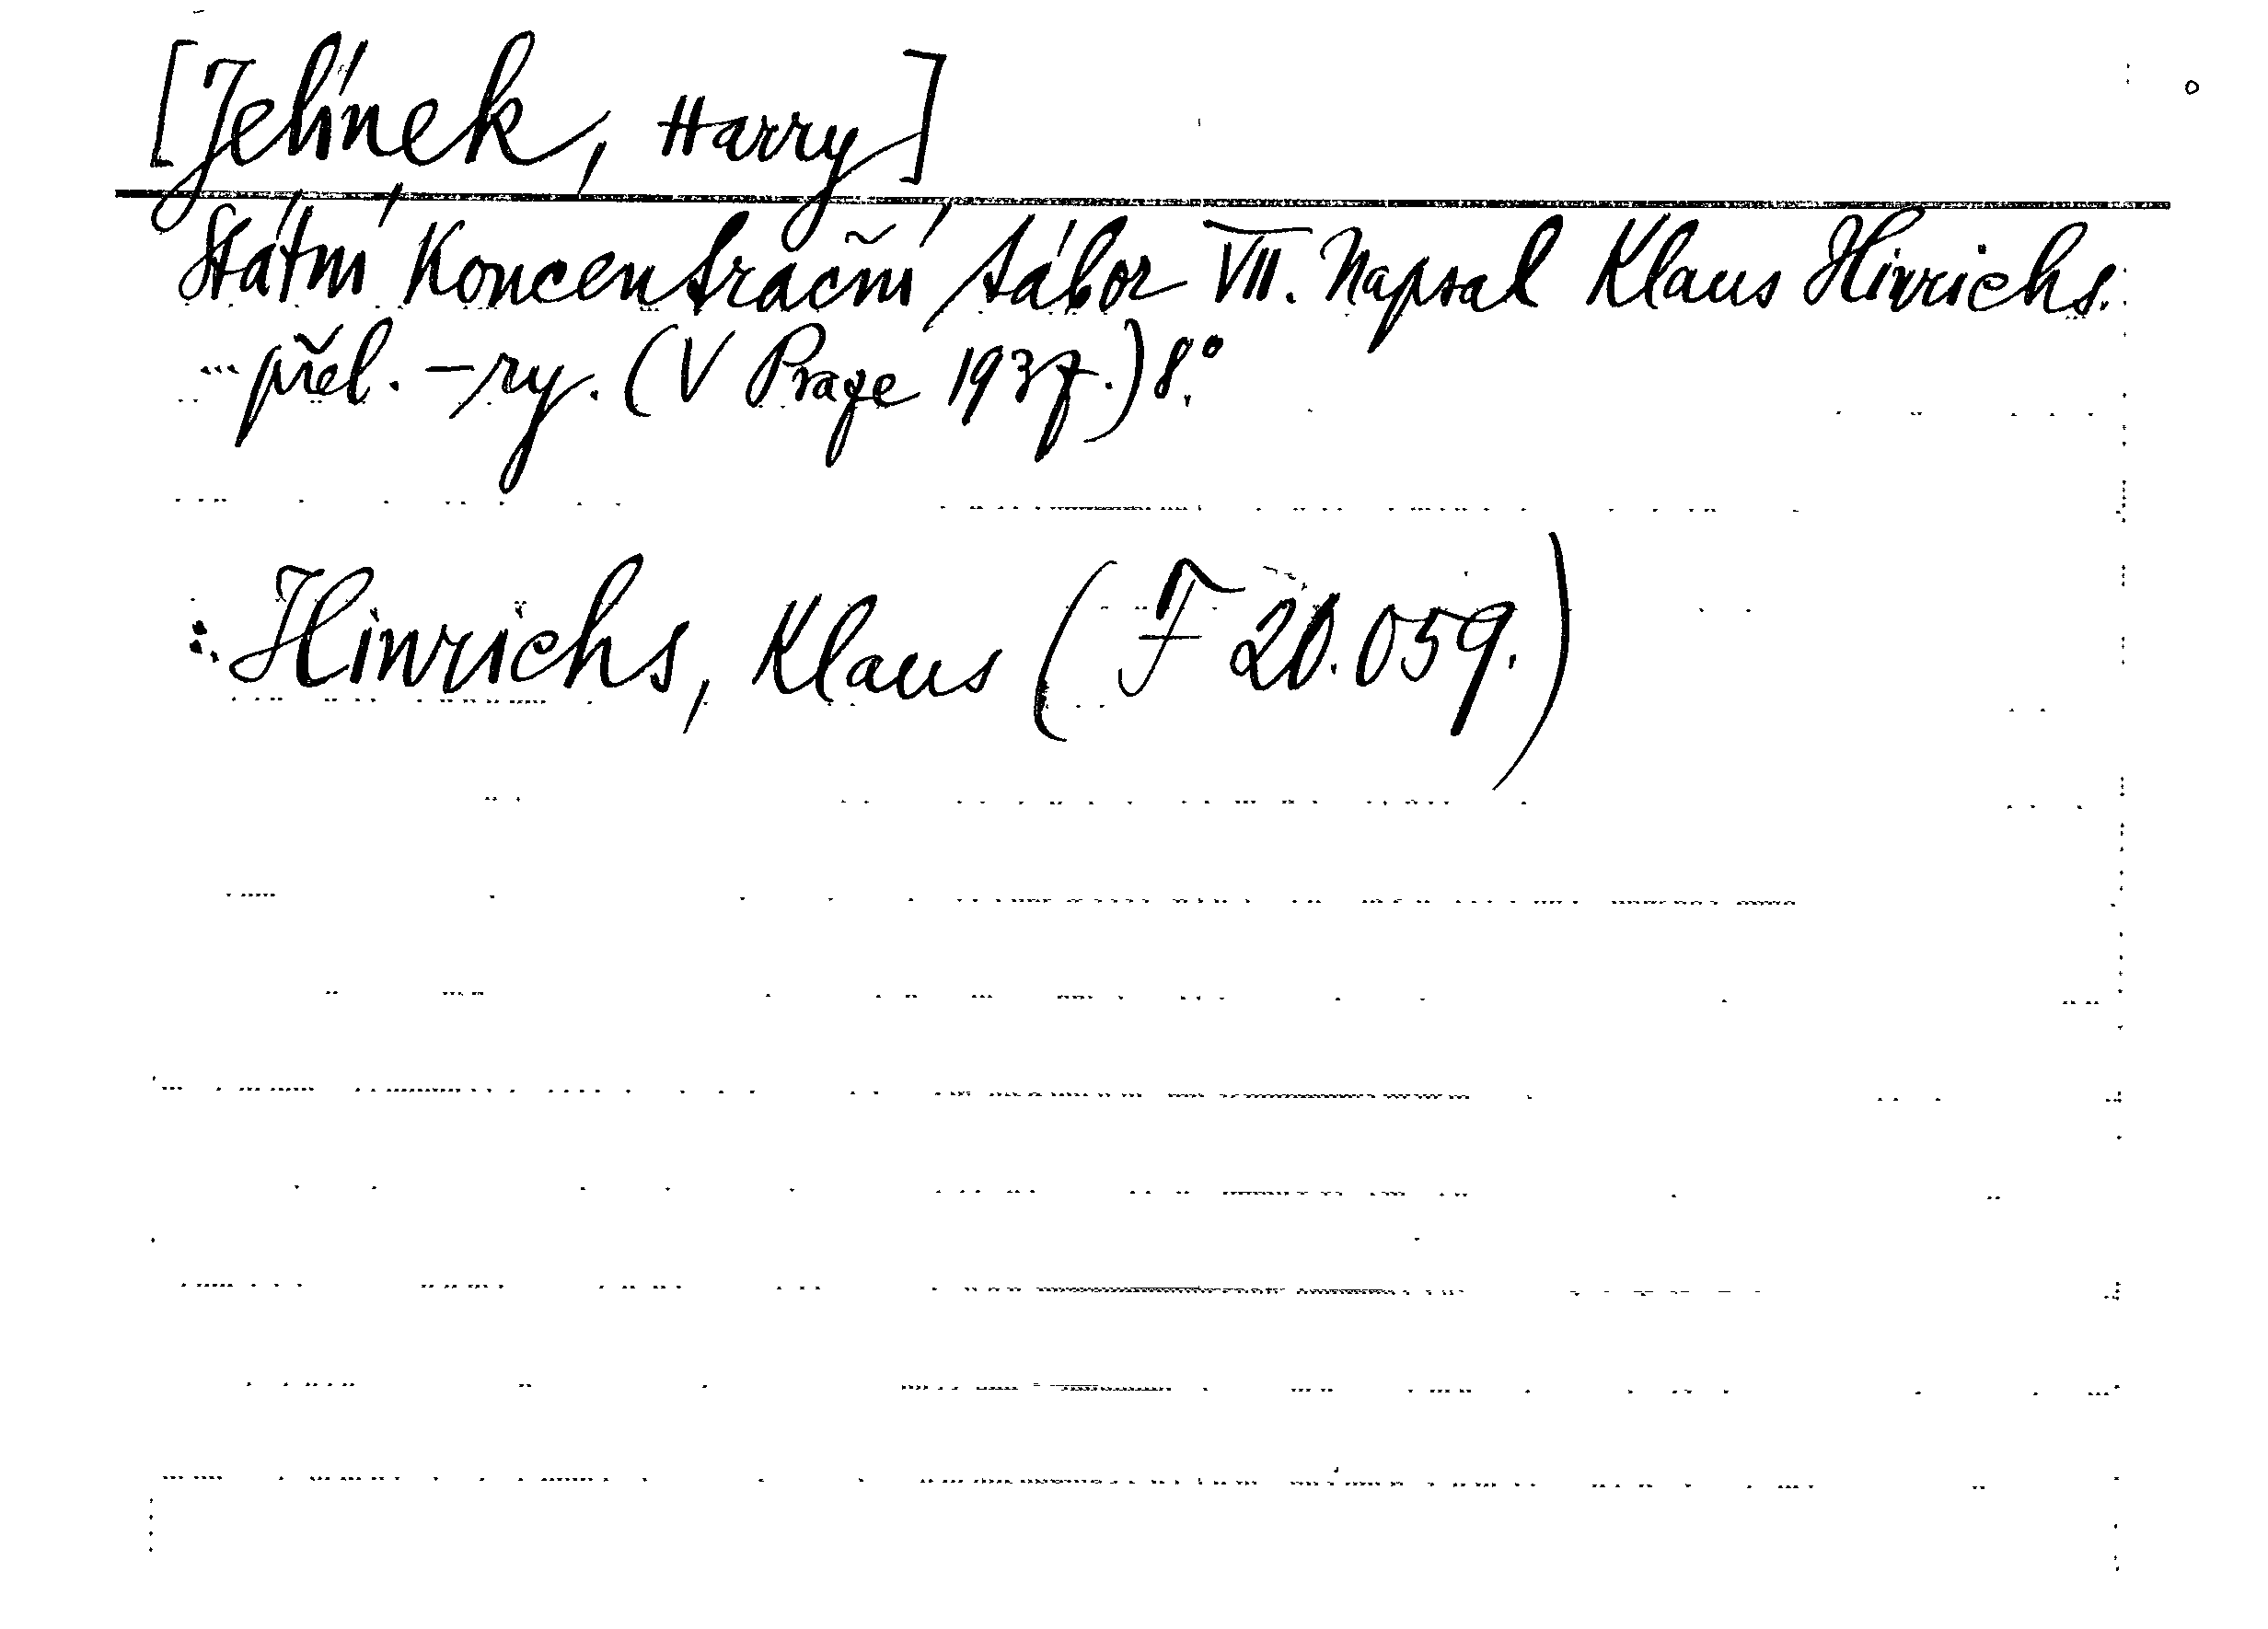 [Jelínek, Harry]
Státní koncentrační tábor VII. Napsal Klaus Hinrichs.
přel. -ry. (V Praze 1937.) 8°.
: Hinrichs, Klaus (F 20.059.)